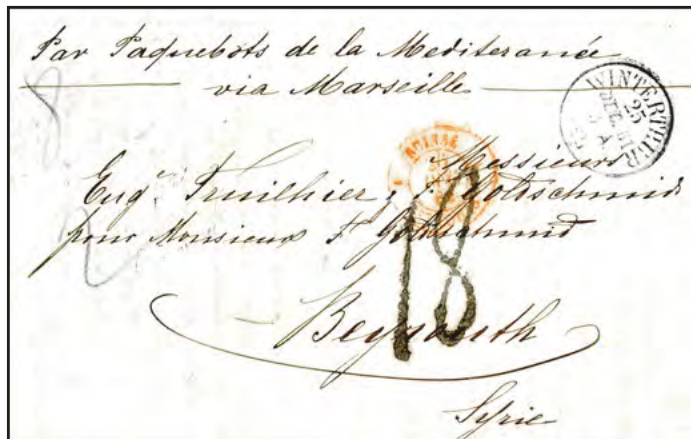 Par Paquebots de la Mediteranée
via Marseille
WINTERTHUR
25
SUISSE
Messieurs
Eug. F. Goldschmid
pour Monsieur F. Goldschmid
18
Beyrouth
Syrie